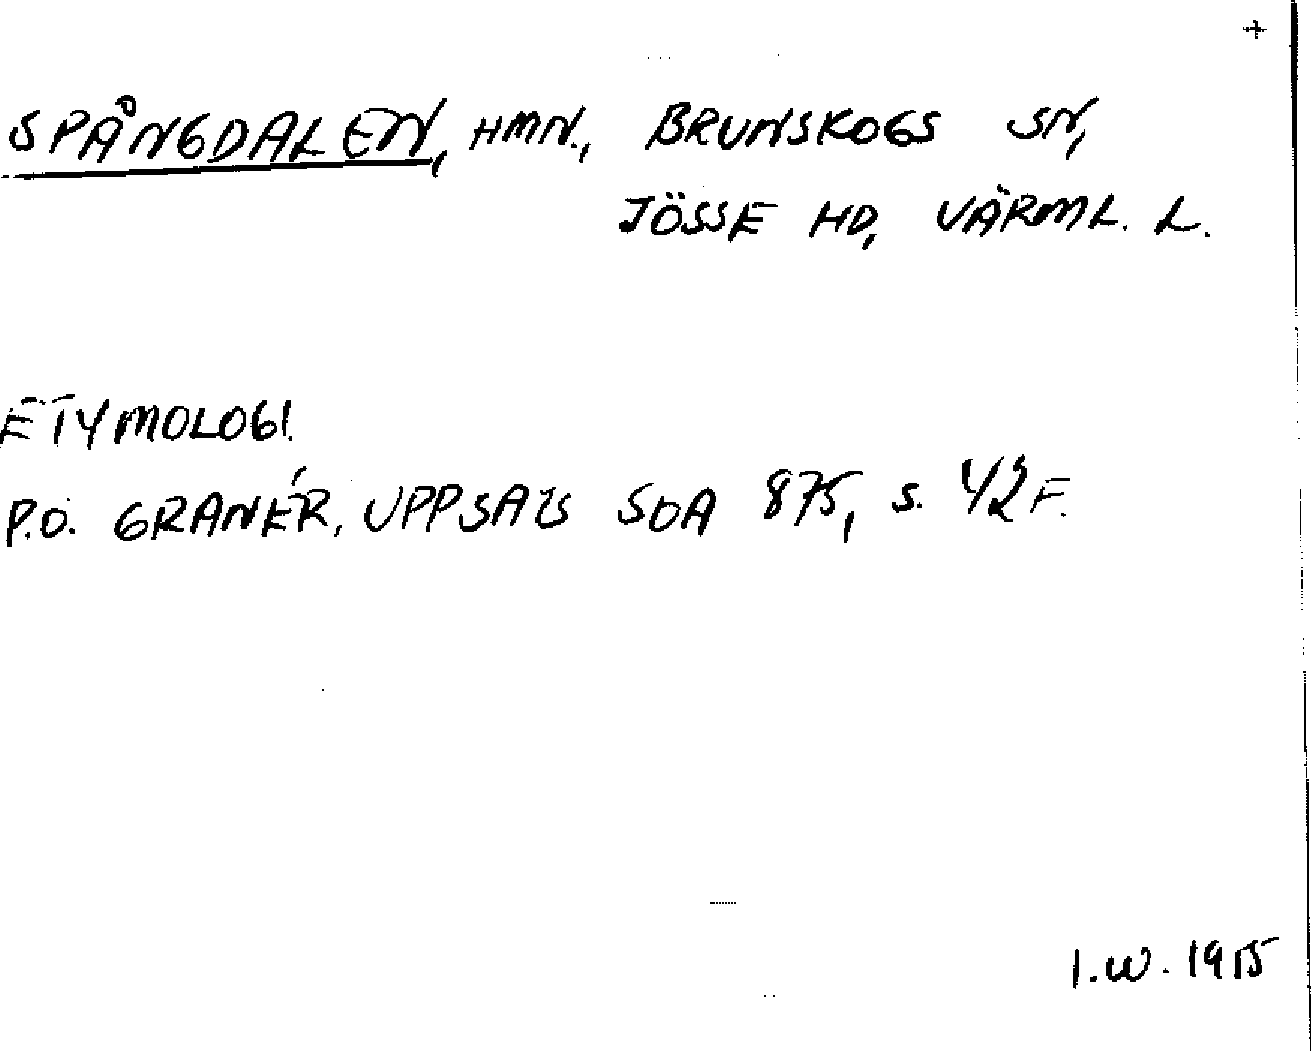 +
SPÅNGDALEN, HMN., BRUNSKOGS SN,
JÖSSE HD, VÄRML. L.
ETYMOLOGI.
P.O. GRANÉR, UPPSALS SOA 875, S. 42 F.
I.W. 1915